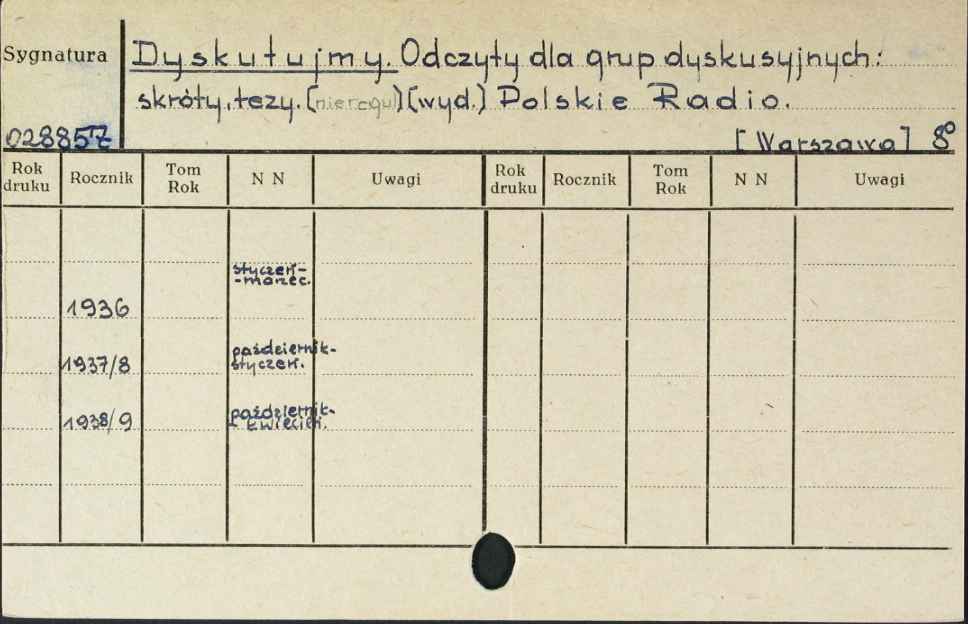 Sygnatura Dyskutujmy. Odczyty dla grup dyskusyjnych:
skróty, tezy. [nieregul] [wyd.] Polskie Radio.
028857 [Warszawa] 8°
Rok druku Rocznik Tom Rok N N Uwagi Rok druku Rocznik Tom Rok N N Uwagi
styczeń-
-marzec.
1936
październik-
1937/8 styczeń.
październik-
1938/9 - kwiecień.